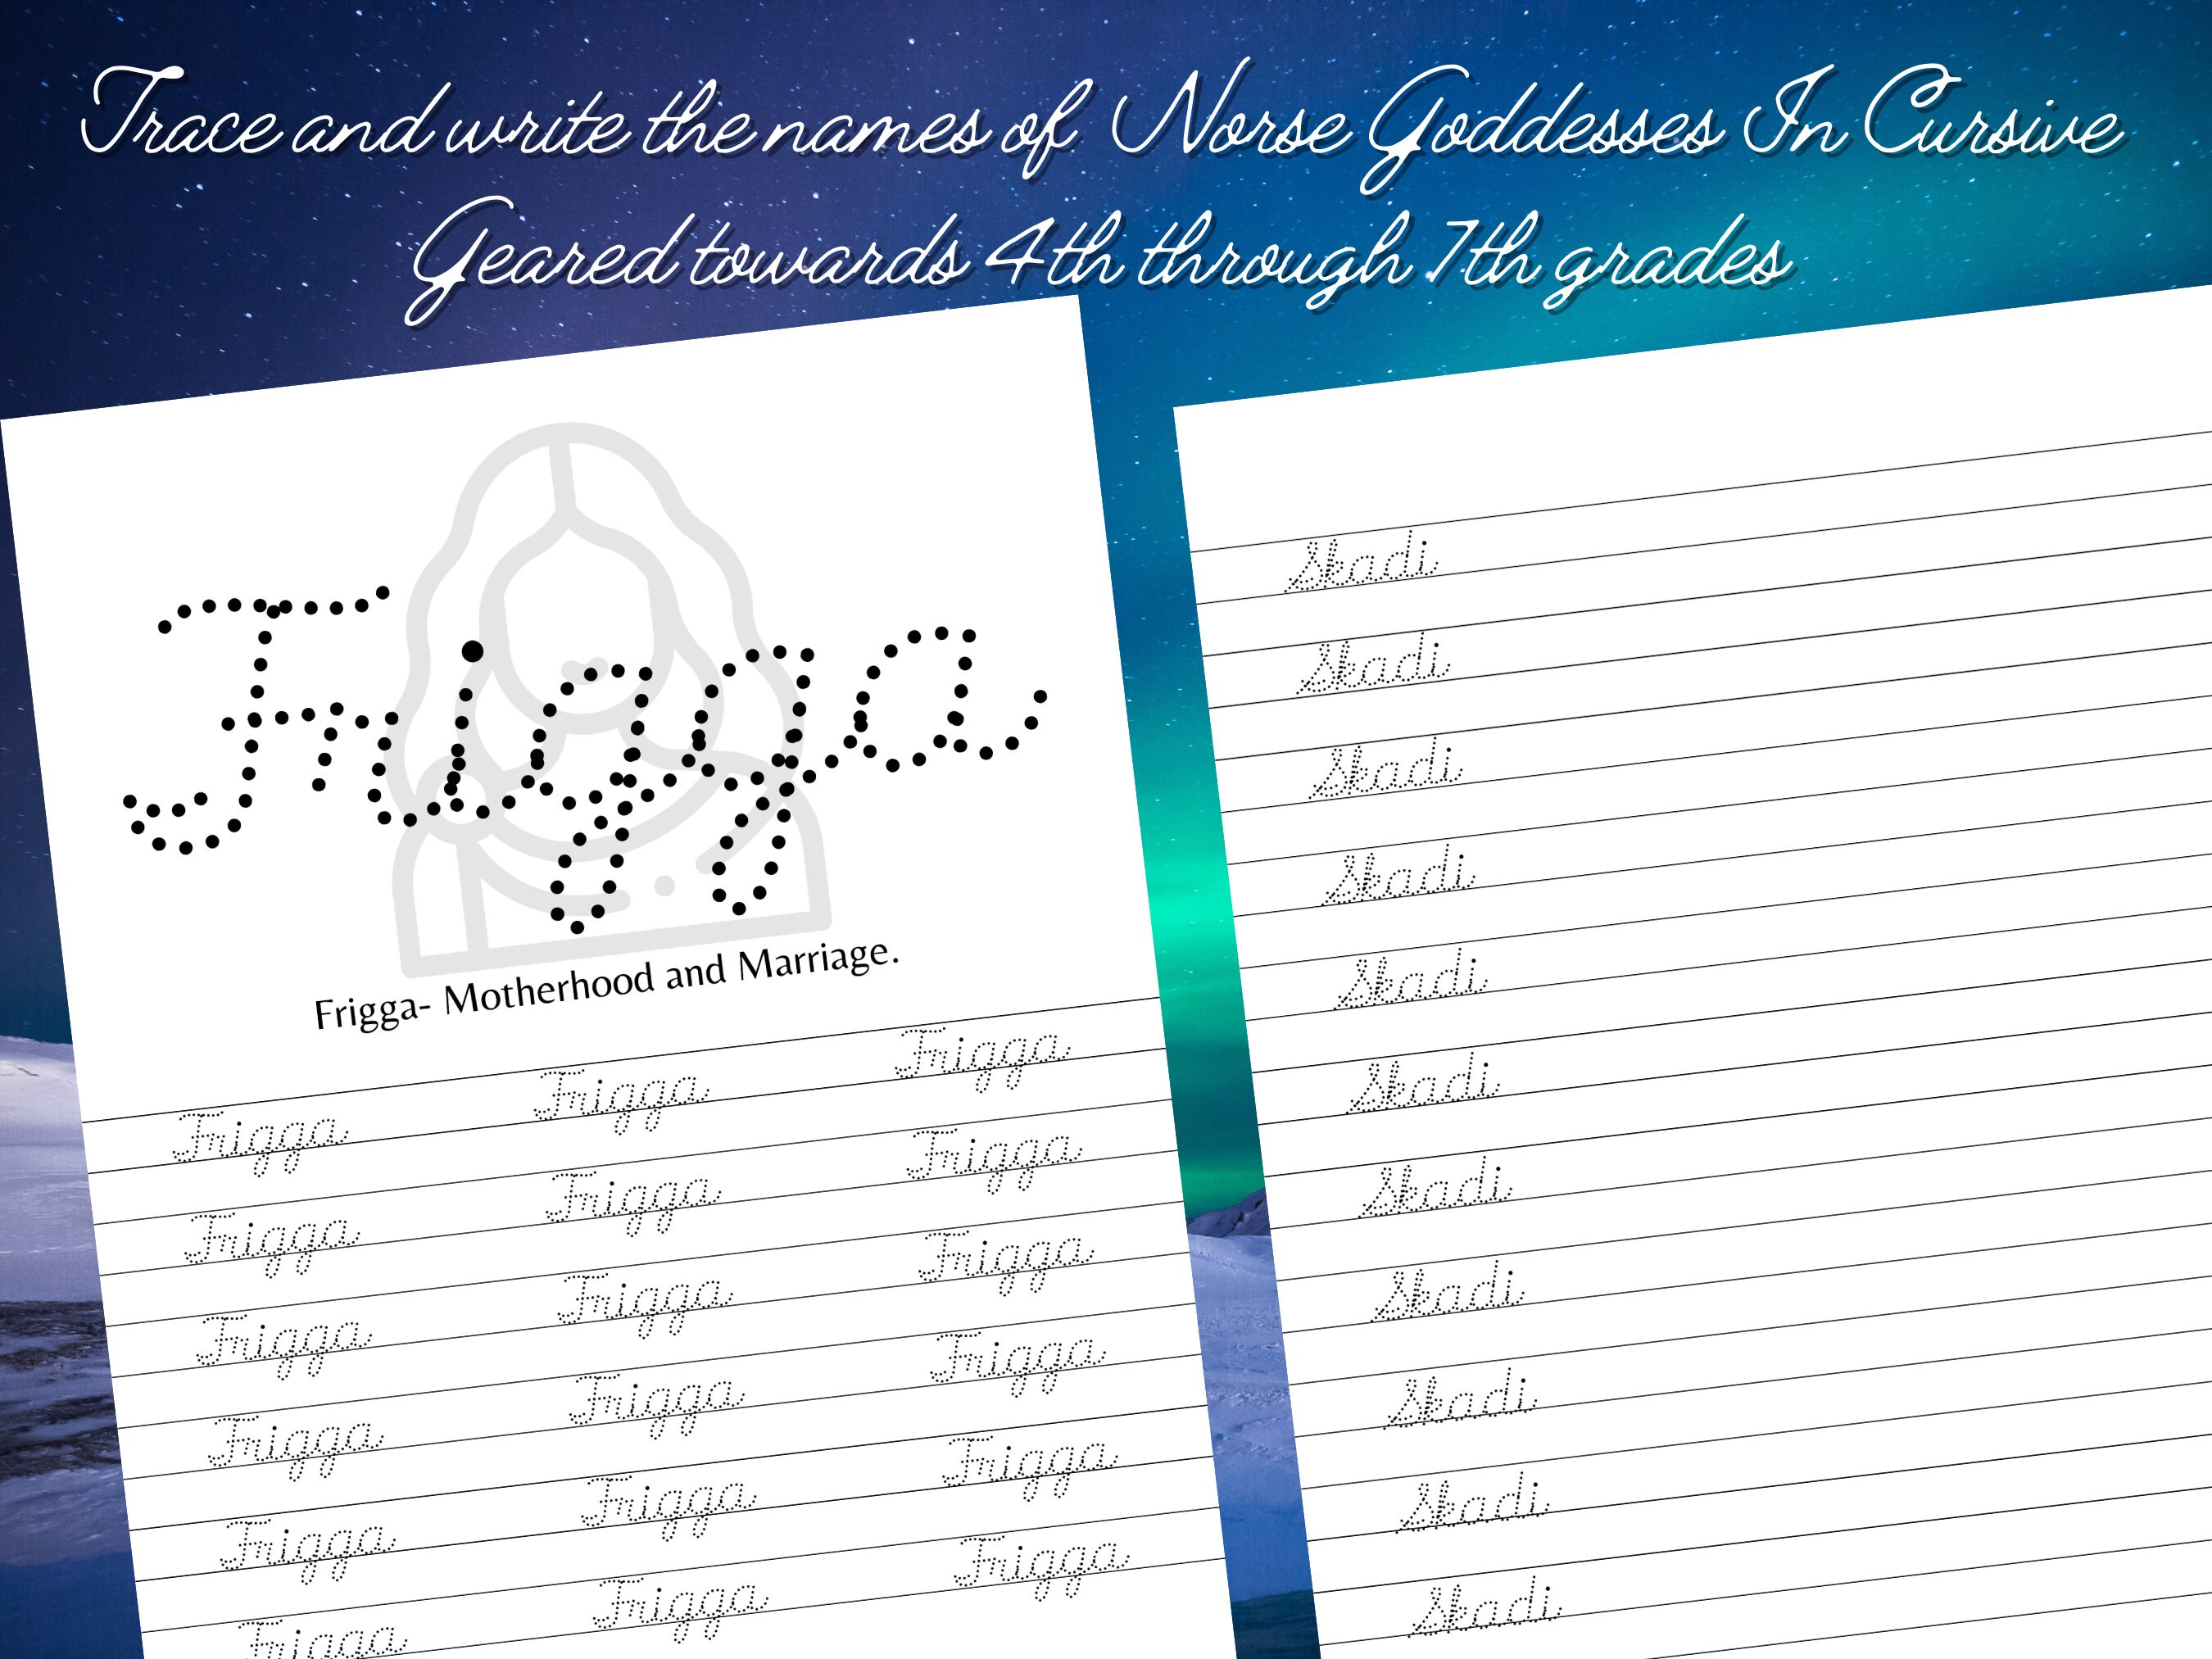 Trace and write the names of Norse Goddesses In Cursive
Geared towards 4th through 7th grades
Frigga
Frigga- Motherhood and Marriage.
Frigga Frigga Frigga
Frigga Frigga Frigga
Frigga Frigga Frigga
Frigga Frigga Frigga
Frigga Frigga Frigga
Frigga Frigga Frigga
Skadi
Skadi
Skadi
Skadi
Skadi
Skadi
Skadi
Skadi
Skadi
Skadi
Skadi